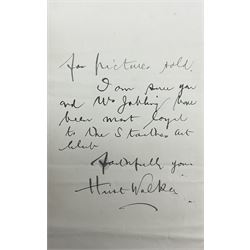 for pictures sold.
I am sure you
and Mr Jobling have
been most loyal
to the Staithes Art
Club
Faithfully yours
Hirst Walker